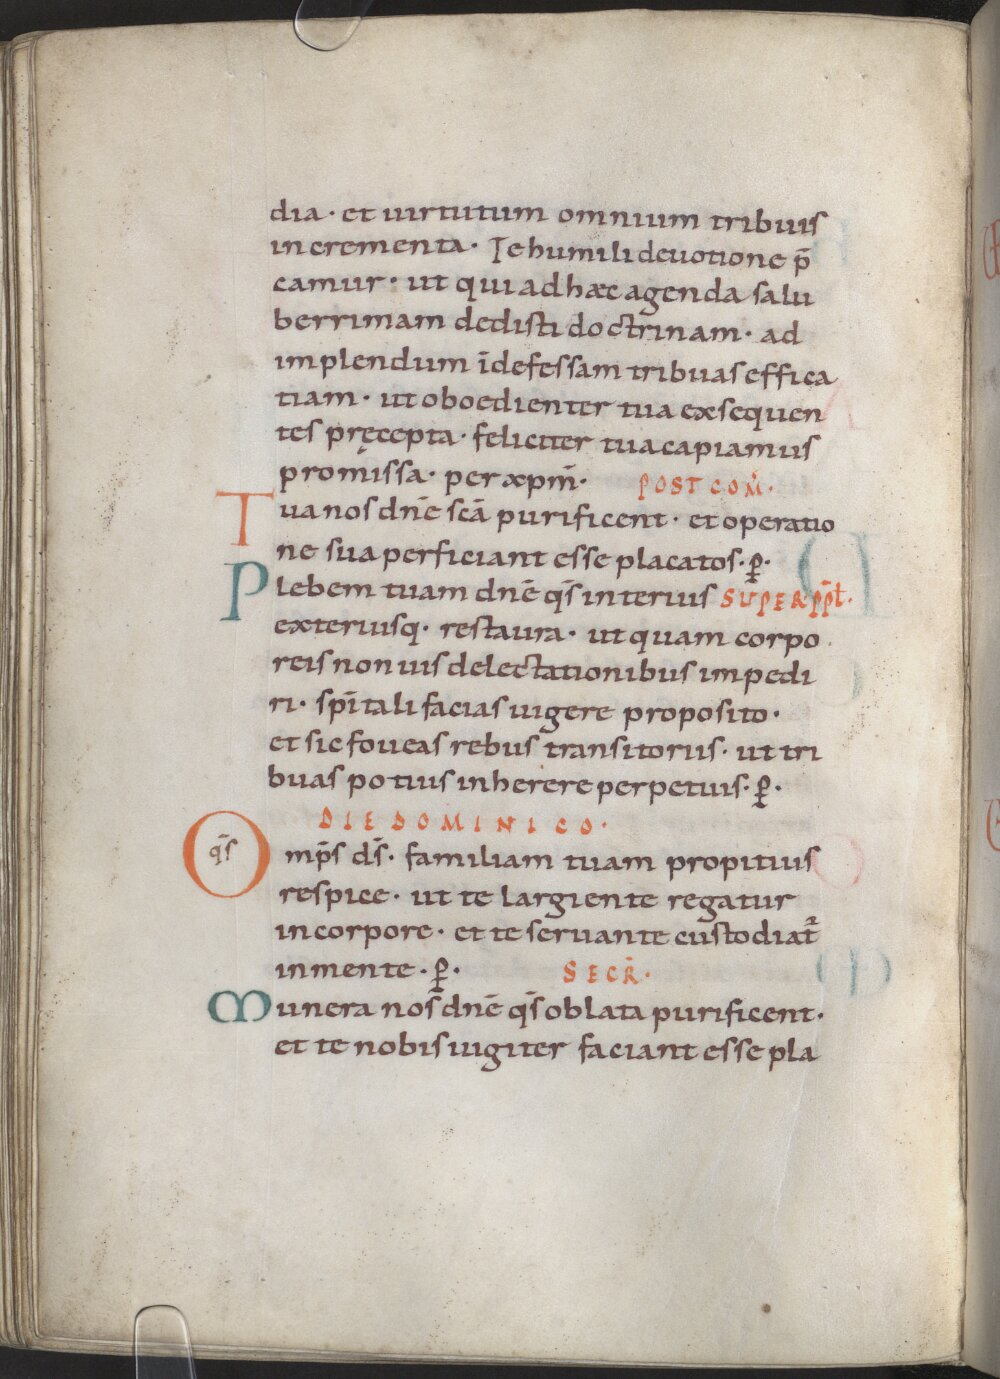 dia · et uirtutum omnium tribuis
incrementa · Te humili deuotione p̄
camur · ut qui ad haec agenda salu
berrimam dedisti doctrinam · ad
implendum īdefessam tribuas effica
tiam · ut oboedienter tua exsequen
tes pręcepta · feliciter tua capiamus
promissa · per xpm̄ · POST COM̄ ·
Tua nos dn̄e sc̄a purificent · et operatio
ne sua perficiant esse placatos · ꝑ ·
Plebem tuam dn̄e qs̄ interius SUPER pp̄l ·
exteriusq · restaura · ut quam corpo
reis non uis delectationibus impedi
ri · sp̄itali facias uigere proposito ·
et sic foueas rebus transitoriis · ut tri
buas potius inherere perpetuis · ꝑ ·
DIE DOMINICO ·
Omp̄s qs̄ ds̄ · familiam tuam propitius
respice · ut te largiente regatur
in corpore · et te seruante custodiat᷑
in mente · ꝑ · SECR̄ ·
Munera nos̄ dn̄e qs̄ oblata purificent ·
et te nobis iugiter faciant esse pla